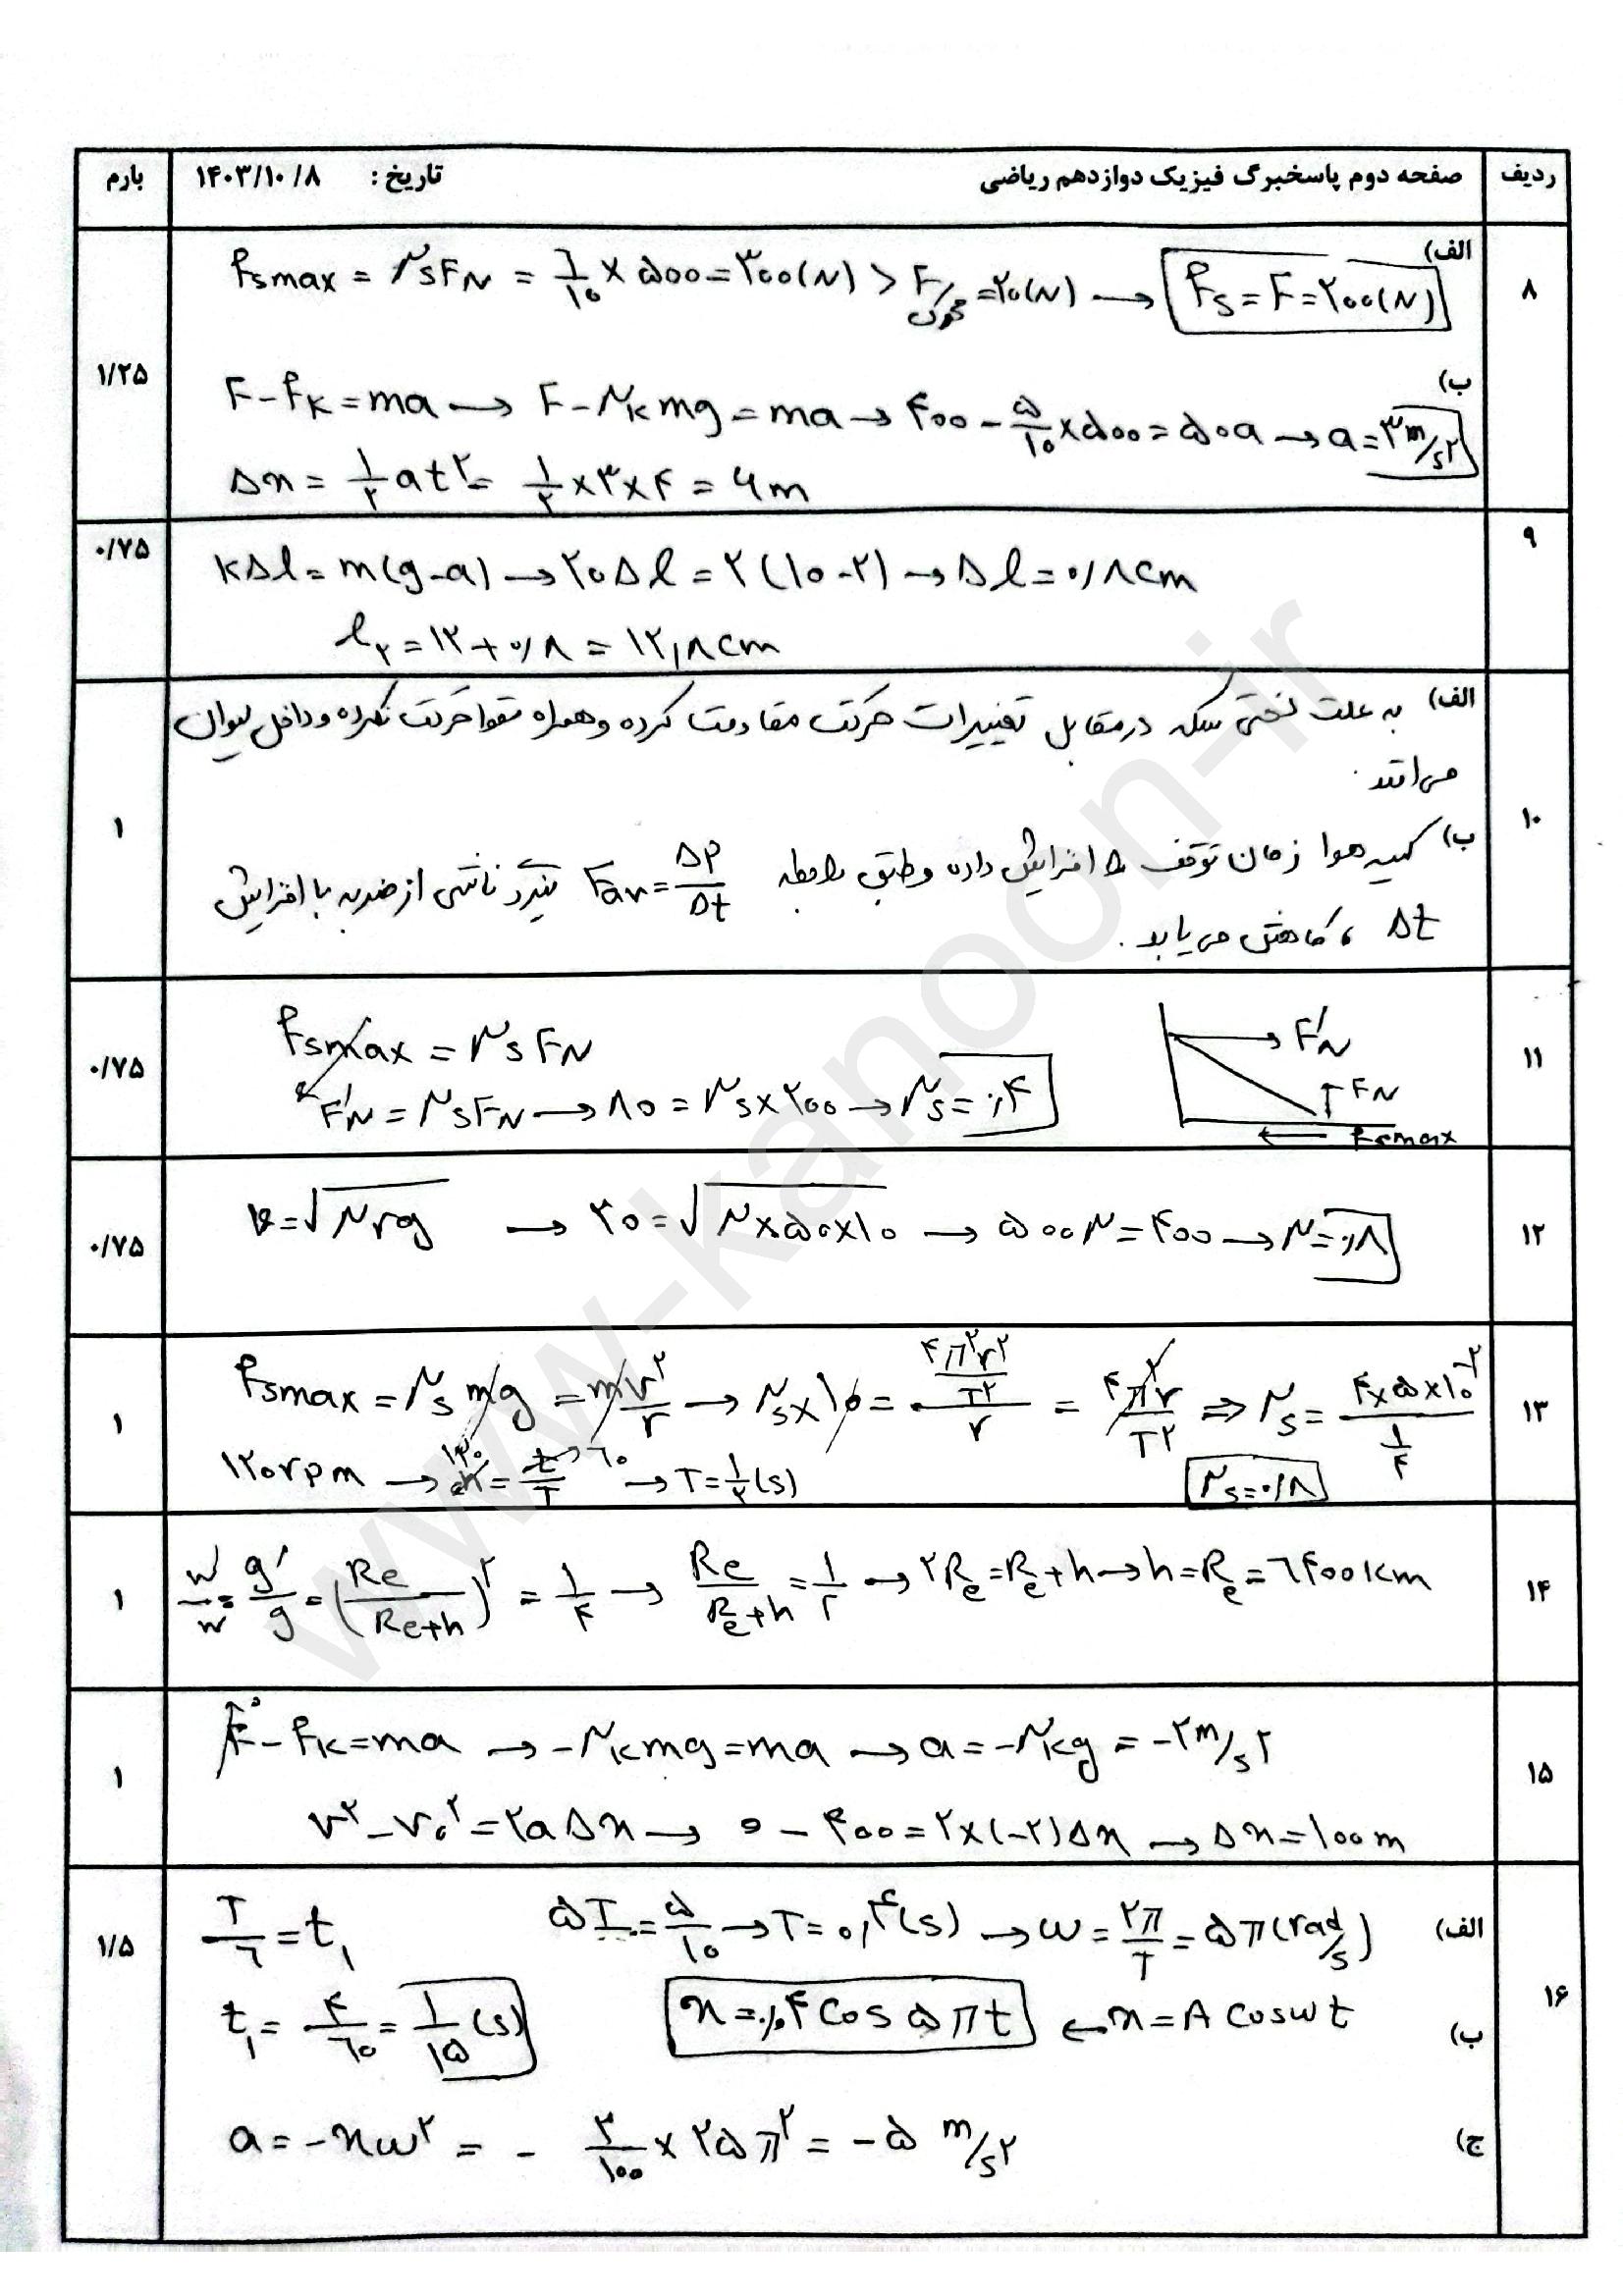 ردیف صفحه دوم پاسخبرگ فیزیک دوازدهم ریاضی تاریخ : ۱۴۰۳/۱۰/۸ بارم
۸
۱/۲۵
الف)
fsmax = μsFN = ۶/۱۰ × ۵۰۰ = ۳۰۰(N) > F محرک = ۲۰(N) → fs = F = ۲۰۰(N)
ب)
F - fK = ma → F - μK mg = ma → ۴۰۰ - ۵/۱۰ × ۵۰۰ = ۵۰a → a = ۳ m/s۲
Δx = ۱/۲ at۲ = ۱/۲ × ۳ × ۴ = ۶m
۹
۰/۷۵
kΔl = m(g-a) → ۲۰Δl = ۲(۱۰-۲) → Δl = ۰/۸cm
l۲ = ۱۲ + ۰/۸ = ۱۲,۸cm
۱۰
۱
الف) به علت لختی سکه در مقابل تغییرات حرکت مقاومت کرده و همراه مقوا حرکت نکرده و داخل لیوان
می‌افتد.
ب) کیسه هوا زمان توقف را افزایش داده و طبق رابطه Fav = ΔP/Δt نیرو ناشی از ضربه با افزایش
Δt ، کاهش می یابد.
۱۱
۰/۷۵
fsmax = μsFN
F'N = μsFN → ۸۰ = μs × ۲۰۰ → μs = ۰/۴
F'N
FN
fsmax
۱۲
۰/۷۵
v = √μrg → ۲۰ = √μ×۵۰×۱۰ → ۵۰۰μ = ۴۰۰ → μ = ۰/۸
۱۳
۱
fsmax = μs mg = mv۲/r → μs × ۱۰ = (۴π۲r۲/T۲)/r = ۴π۲r/T۲ ⇒ μs = ۴×۵×۱۰-۲/(۱/۴)
۱۲۰rpm → n = t/T → T = ۱/۲(s)
۱۲۰ ۶۰
μs = ۰/۸
۱۴
۱
w'/w = g'/g = (Re/Re+h)۲ = ۱/۴ → Re/Re+h = ۱/۲ → ۲Re = Re+h → h = Re = ۶۴۰۰km
۱۵
۱
F - fK = ma → -μK mg = ma → a = -μKg = -۲m/s۲
v۲ - v۰۲ = ۲aΔx → ۰ - ۴۰۰ = ۲×(-۲)Δx → Δx = ۱۰۰m
۱۶
۱/۵
الف) ۵T/۴ = ۵/۱۰ → T = ۰,۴(s) → ω = ۲π/T = ۵π(rad/s)
x = A cosωt → x = ۰/۰۴ Cos ۵πt
ب) T/۶ = t۱
t۱ = ۴/۶۰ = ۱/۱۵(s)
ج) a = -xω۲ = - ۲/۱۰۰ × ۲۵π۲ = -۵ m/s۲
www-kanoon-ir